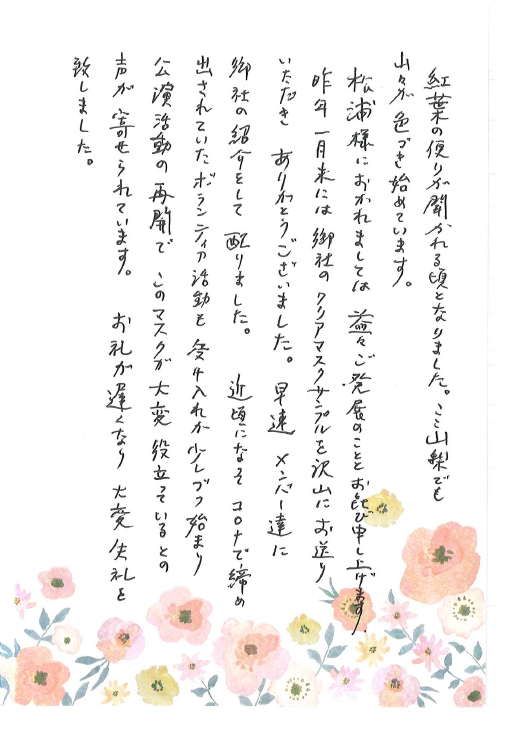 紅葉の便りが聞かれる頃となりました。ここ山梨でも
山々が色づき始めています。
松浦様におかれましては 益々ご発展のこととお慶び申し上げます。
昨年一月末には 御社のクリアマスクサンプルを沢山にお送り
いただき ありがとうございました。 早速 メンバー達に
御社の紹介をして 配りました。 近頃になって コロナで締め
出されていたボランティア活動も 受け入れが少しづつ始まり
公演活動の再開で このマスクが大変 役立っているとの
声が 寄せられています。 お礼が遅くなり 大変 失礼を
致しました。